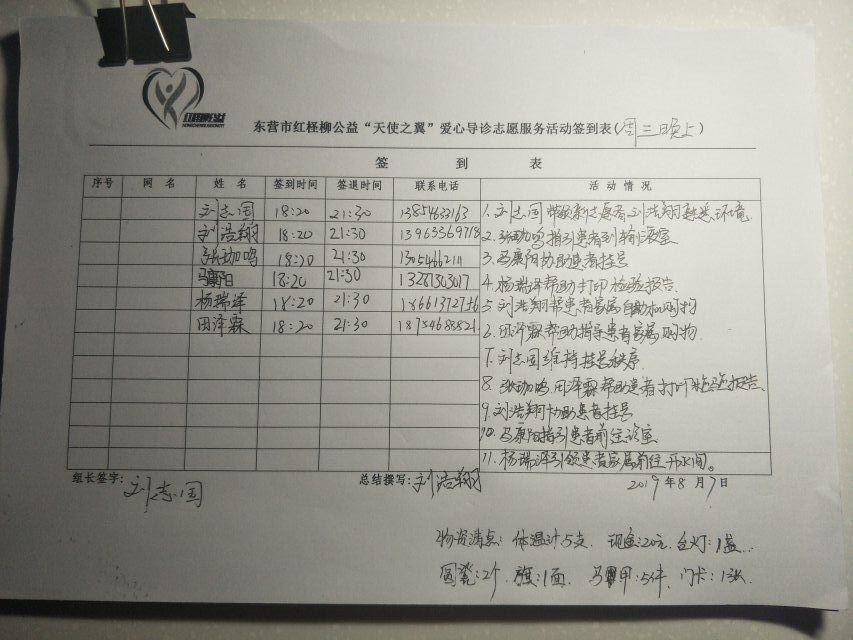 东营市红柽柳公益“天使之翼”爱心导诊志愿服务活动签到表(周三晚上)
签 到 表
序号 网 名 姓 名 签到时间 签退时间 联系电话 活 动 情 况
刘志国 18:20 21:30 13854633163 1. 刘志国带领新志愿者刘浩翔熟悉环境.
刘浩翔 18:20 21:30 13963369718 2. 张珈鸣指引患者到输液室
张珈鸣 18:20 21:30 3. 马康阳协助患者挂号
马康阳 18:20 21:30 13287303017 4. 杨瑞泽帮助打印检验报告.
杨瑞泽 18:20 21:30 5. 刘浩翔帮患者家属自助机购物
田泽霖 18:20 21:30 18754683821 6. 田泽霖帮助指导患者家属购物
7. 刘志国维持挂号秩序
8. 张珈鸣.田泽霖帮助患者打印检验报告
9. 刘浩翔协助患者挂号
10. 马康阳指引患者前往诊室
11. 杨瑞泽引领患者家属前往开水间。
组长签字: 刘志国 总结撰写: 刘浩翔 2019年8月7日
物资清点: 体温计5支. 现金:20元. 台灯:1盏..
圆凳:2个. 旗:1面. 马甲:5件. 门卡:1张.